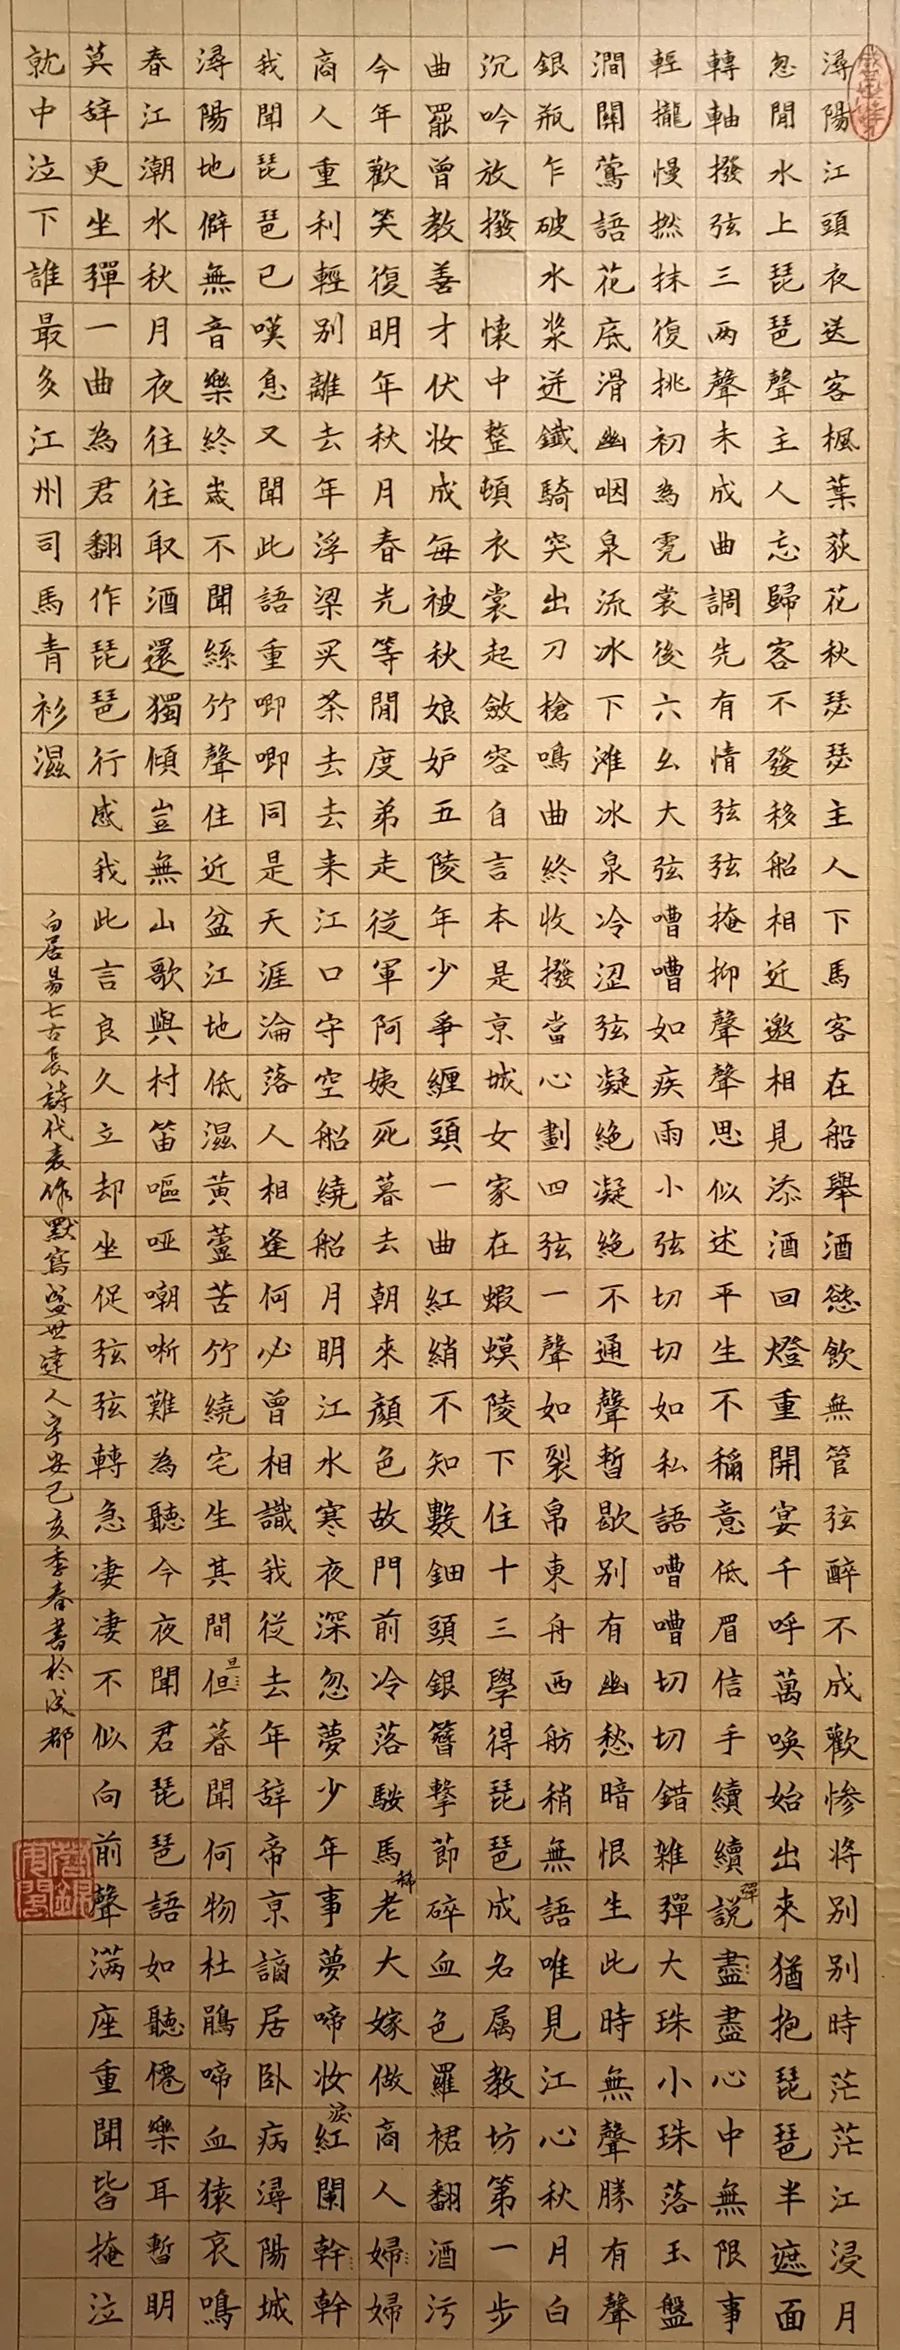 潯陽江頭夜送客楓葉荻花秋瑟瑟主人下馬客在船舉酒慾飲無管弦醉不成歡惨将别别時茫茫江浸月
忽聞水上琵琶聲主人忘歸客不發移船相近邀相見添酒回燈重開宴千呼萬唤始出來猶抱琵琶半遮面
轉軸撥弦三两聲未成曲調先有情弦弦掩抑聲聲思似述平生不稱意低眉信手續續説彈盡盡心中無限事
輕攏慢撚抹復挑初為霓裳後六幺大弦嘈嘈如疾雨小弦切切如私語嘈嘈切切錯雜彈大珠小珠落玉盤
澗關鶯語花底滑幽咽泉流冰下滩冰泉冷涩弦凝絶凝絶不通聲暫歇别有幽愁暗恨生此時無聲勝有聲
銀瓶乍破水漿迸鐵騎突出刀槍鳴曲終收撥當心劃四弦一聲如裂帛東舟西舫稍無語唯見江心秋月白
沉吟放撥懷中整頓衣裳起斂容自言本是京城女家在蝦蟆陵下住十三學得琵琶成名属教坊第一步
曲罷曾教善才伏妆成每被秋娘妒五陵年少爭纏頭一曲紅綃不知數鈿頭銀簪擊節碎血色羅裙翻酒污
今年歡笑復明年秋月春光等閒度弟走從軍阿姨死暮去朝來顏色故門前冷落駿馬稀老大嫁做商人婦婦
商人重利輕别離去年浮梁买茶去去来江口守空船繞船月明江水寒夜深忽夢少年事夢啼妆淚紅闌幹幹
我聞琵琶已嘆息又聞此語重唧唧同是天涯淪落人相逢何必曾相識我從去年辞帝京謫居卧病潯陽城
潯陽地僻無音樂終歲不聞絲竹聲住近盆江地低濕黄蘆苦竹繞宅生其間但旦暮聞何物杜鵑啼血猿哀鳴
春江潮水秋月夜往往取酒還獨傾豈無山歌與村笛嘔哑嘲哳難為聽今夜聞君琵琶語如聽僊樂耳暫明
莫辞更坐彈一曲為君翻作琵琶行感我此言良久立却坐促弦弦轉急凄凄不似向前聲满座重聞皆掩泣
就中泣下誰最多江州司馬青衫濕
白居易七古長詩代表作默寫盛世達人宇安己亥季春書於成都